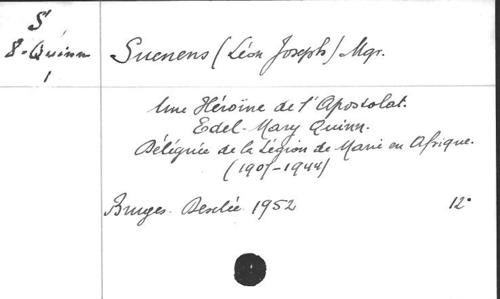 S
8-Quinn
1
Suenens (Léon Joseph) Mgr.
Une Héroïne de l'Apostolat.
Edel-Mary Quinn.
Déléguée de la Légion de Marie en Afrique.
(1907-1944)
Bruges. Desclée. 1952
12°